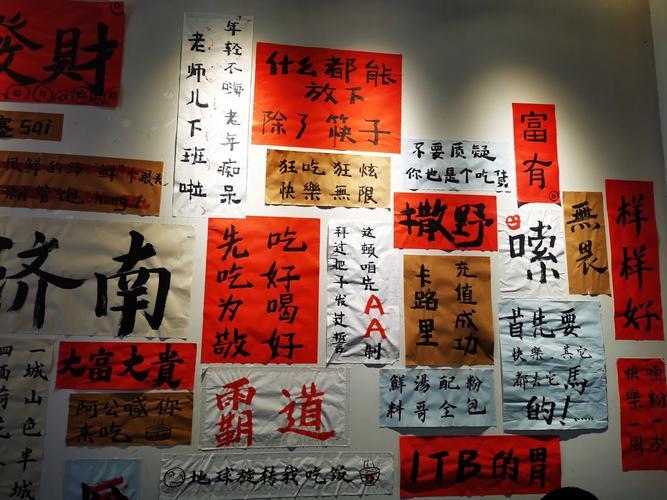 發財
塞5ai
年轻不嗨 老年痴呆
老师儿下班啦
什么都能
放下
除了筷子
狂吃狂炫
快樂無限
不要质疑
你也是个吃货
富有
撒野
嗦
無畏
样样好
济南
吃好喝好
先吃为敬
这顿咱先AA制
拜过把子发过誓
充值成功
卡路里
首先要
快樂,其它
都去它
馬
的!
大富大貴
阿公喊你
来吃
霸道
鲜汤配粉
料哥全包
一城山色半城
四面荷花
嗦粉一次
快樂一周
地球旋转我吃饭
1TB的胃